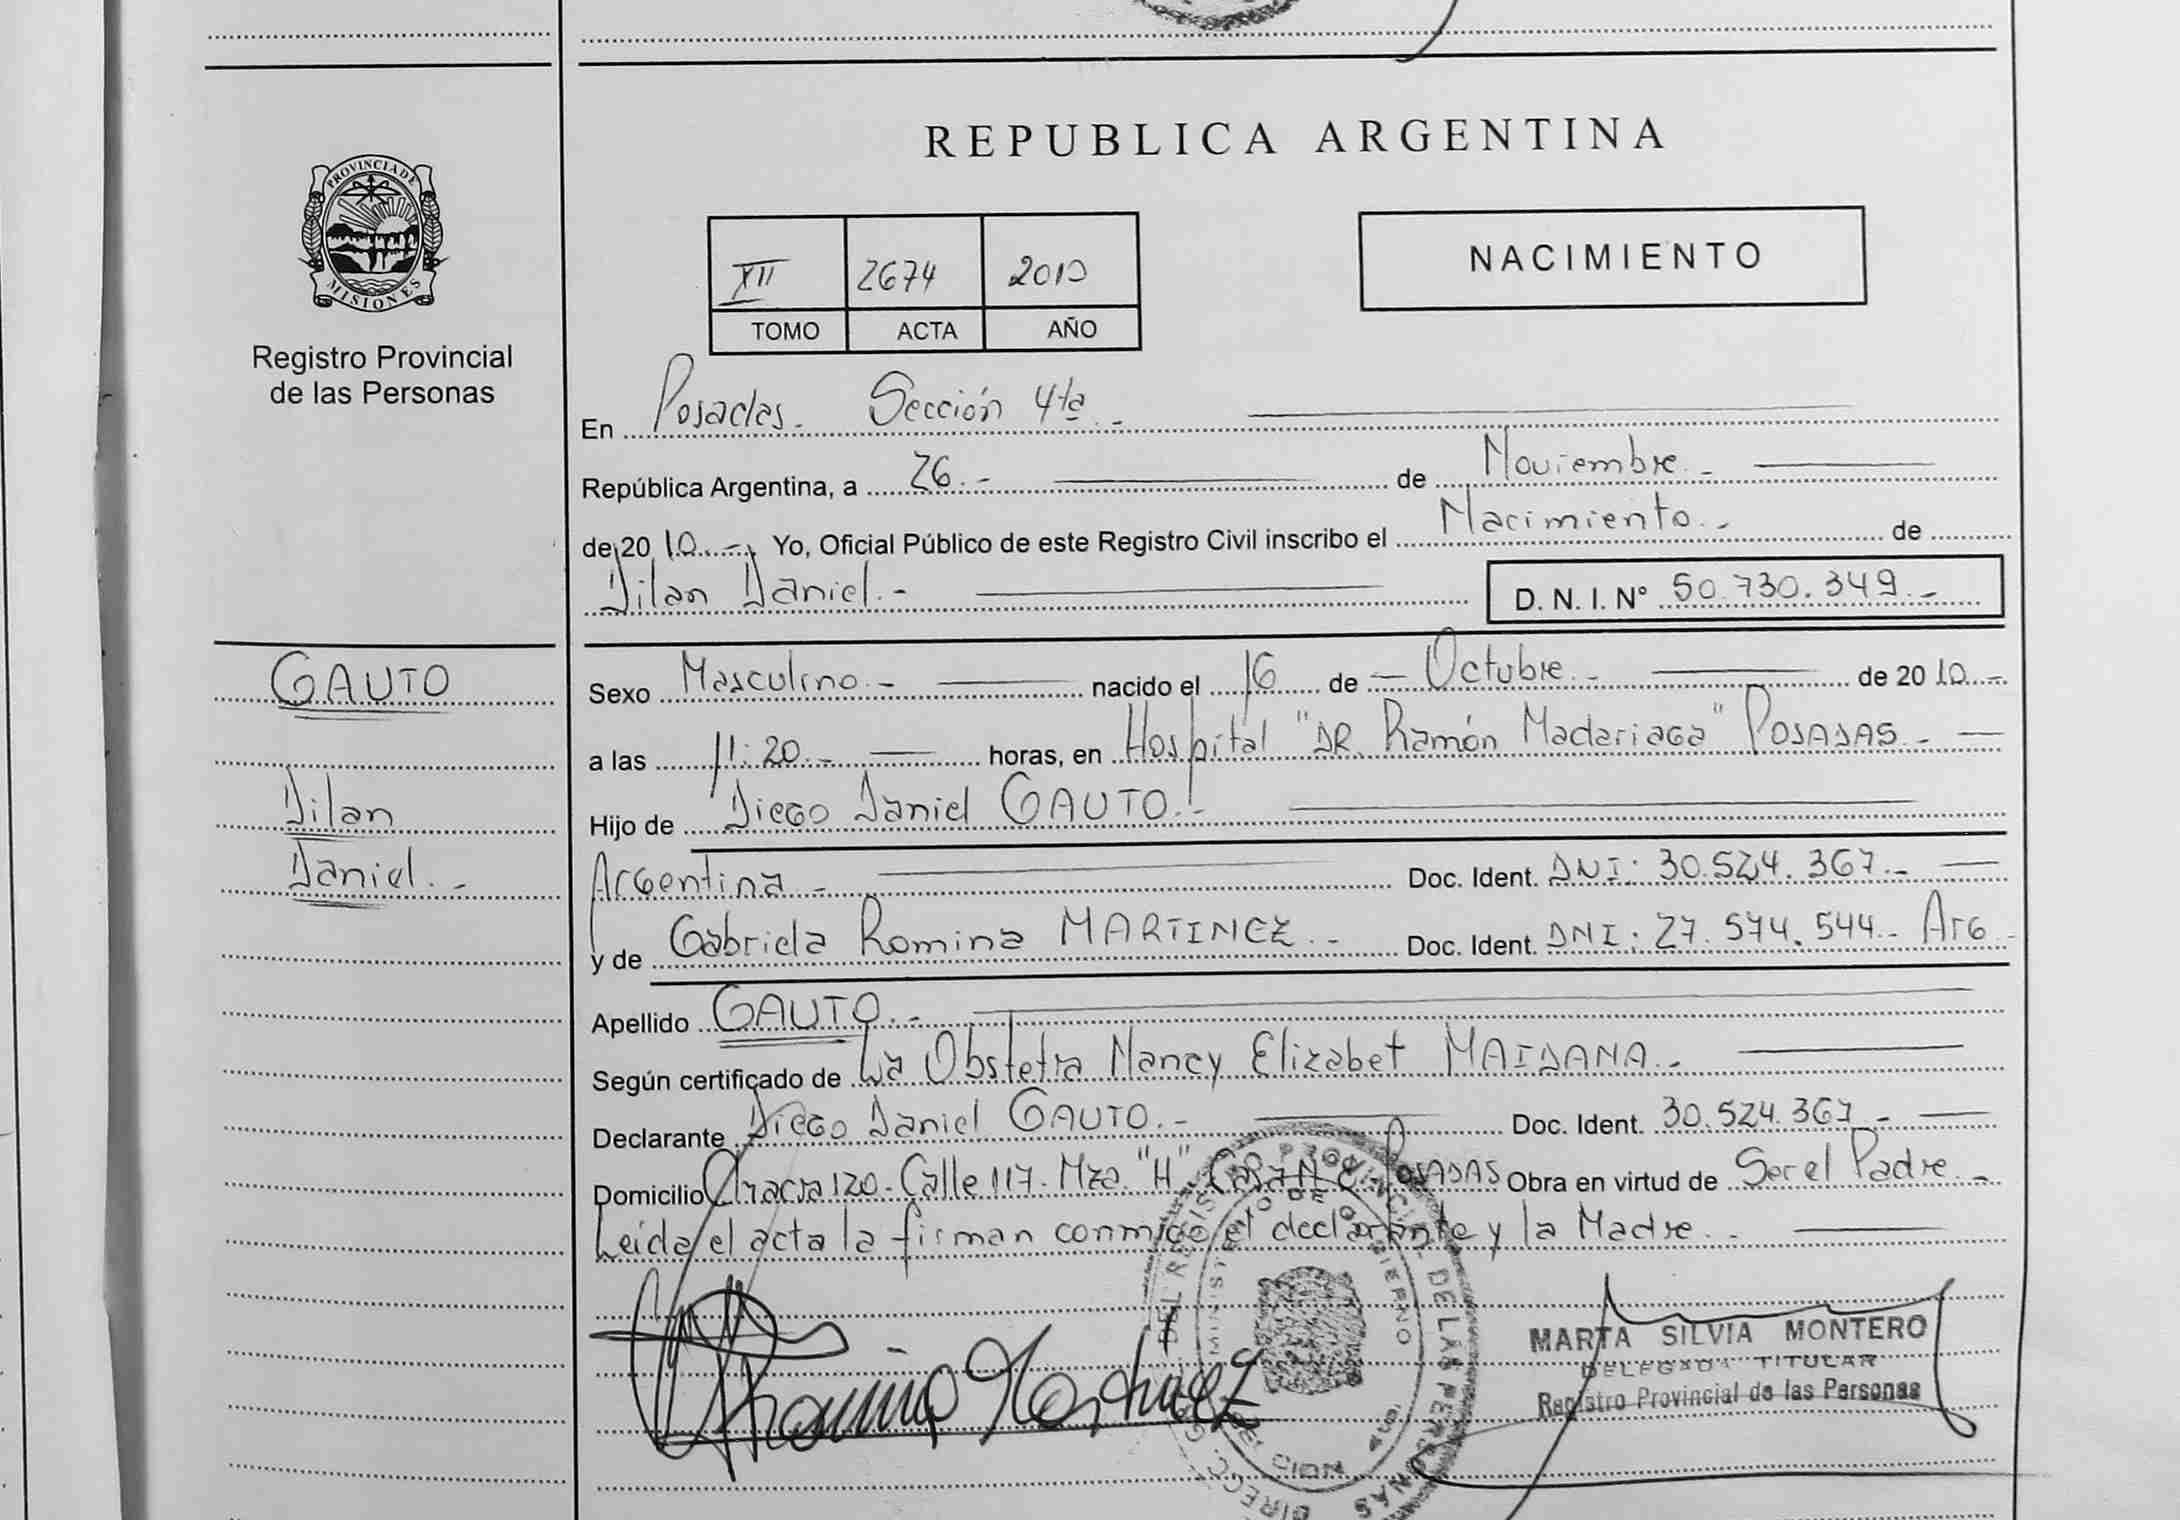 REPUBLICA ARGENTINA
PROVINCIA DE
MISIONES
Registro Provincial
de las Personas
NACIMIENTO
XII 2674 2010
TOMO ACTA AÑO
En Posadas.- Sección 4ta.-
República Argentina, a 26.- de Noviembre.-
de 20 10.- Yo, Oficial Público de este Registro Civil inscribo el Nacimiento.- de
Dilan Daniel.- D. N. I. Nº 50.730.349.-
GAUTO
Dilan
Daniel.-
Sexo Masculino.- nacido el 16 de Octubre.- de 20 10.-
a las 11:20.- horas, en Hospital "DR. Ramón Madariaga" POSADAS.-
Hijo de Diego Daniel GAUTO.-
Argentina.- Doc. Ident. DNI: 30.524.367.-
y de Gabriela Romina MARTINEZ.- Doc. Ident. DNI: 27.574.544.- Arg
Apellido GAUTO.-
Según certificado de La Obstetra Nancy Elizabet MAIDANA.-
Declarante Diego Daniel GAUTO.- Doc. Ident. 30.524.367.-
Domicilio Chacra 120- Calle 117- Mza. "H" Casa Nº POSADAS Obra en virtud de Ser el Padre.-
Leida el acta la firman conmigo el declarante y la Madre.-
Romina Martinez
MARTA SILVIA MONTERO
DELEGADA TITULAR
Registro Provincial de las Personas
DEL REGISTRO PROVINCIAL DE LAS PERSONAS
MINISTERIO DE GOBIERNO